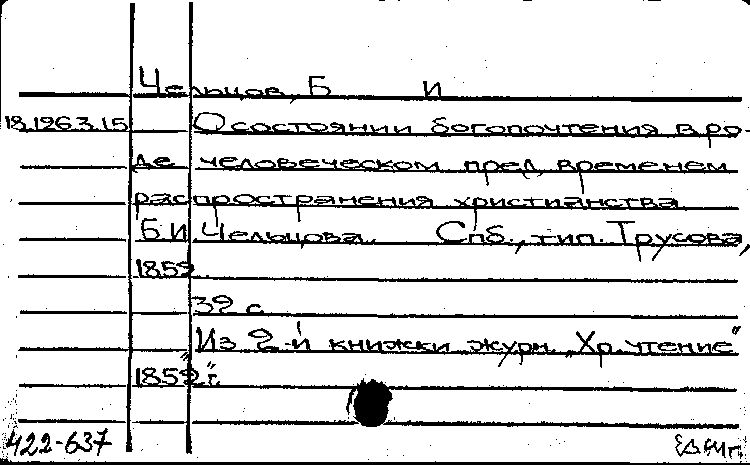 Чельцов, Б И
18.126.3.15 О состоянии богопочтения в ро-
де человеческом пред временем
распространения христианства
Б.И. Чельцова. Спб., тип. Трусова,
1859.
32 с.
Из 2-й книжки журн. „Хр. чтение"
1859 г.
422-637